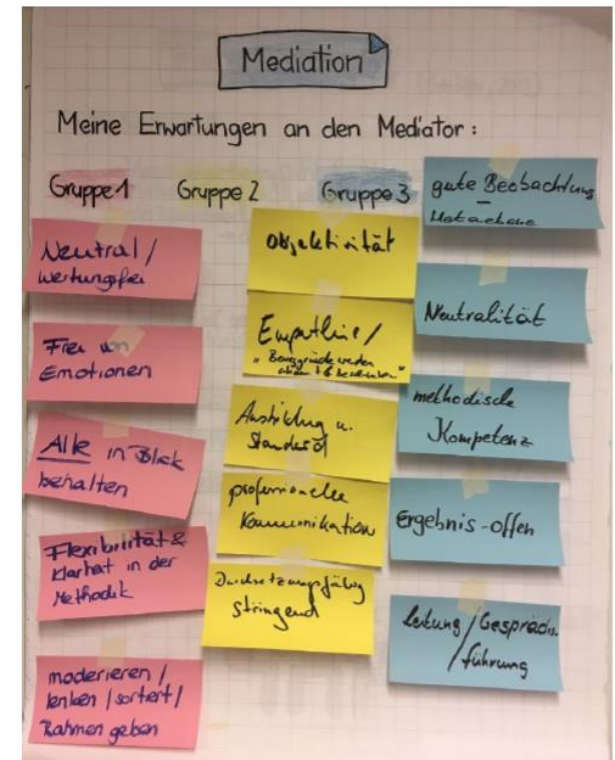 Mediation
Meine Erwartungen an den Mediator :
Gruppe 1
Gruppe 2
Gruppe 3
Neutral /
wertungsfrei
Frei von
Emotionen
Alle in Blick
behalten
Flexibilität &
Klarheit in der
Methodik
moderieren /
lenken / sortiert /
Rahmen geben
Objektivität
Empathie /
"Beweggründe werden
Ausbildung u.
Standard
professionelle
Kommunikation
Durchsetzungsfähig
stringend
gute Beobachtung
–
Metaebene
Neutralität
methodische
Kompetenz
Ergebnis-offen
Leitung / Gesprächs.
/ führung